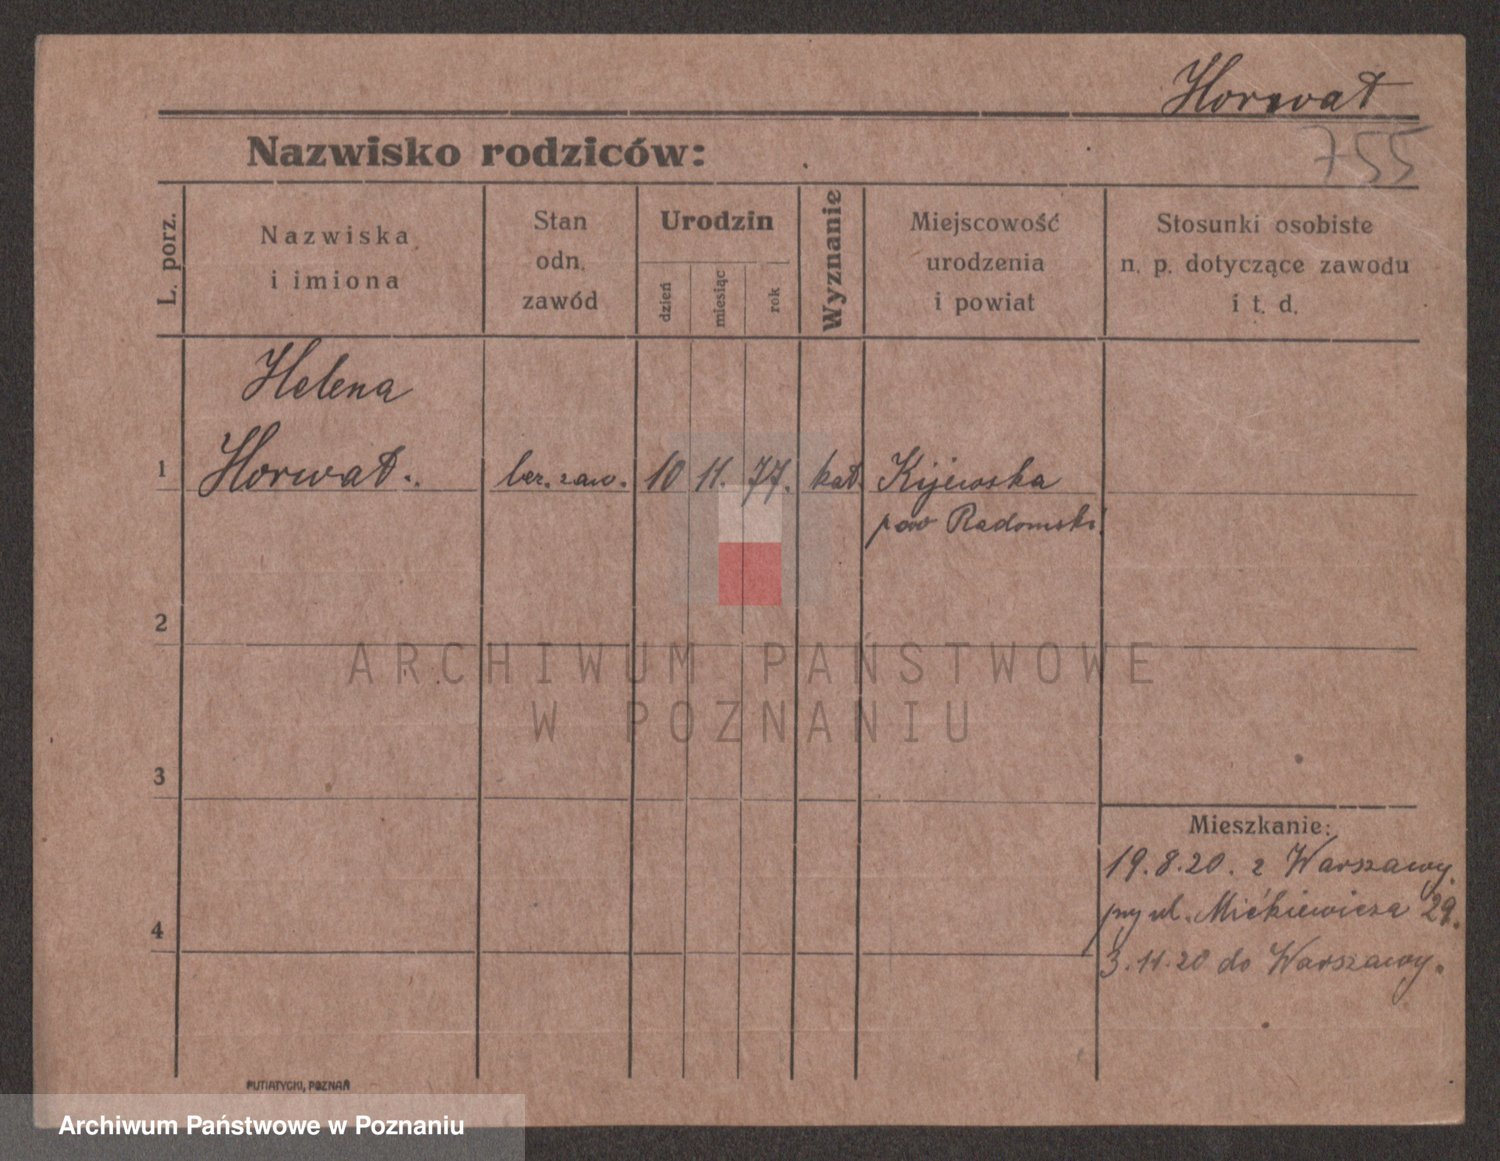 Horwat
755
Nazwisko rodziców:
L. porz.
Nazwiska
i imiona
Stan
odn.
zawód
Urodzin
dzień
miesiąc
rok
Wyznanie
Miejscowość
urodzenia
i powiat
Stosunki osobiste
n. p. dotyczące zawodu
i t. d.
Helena
1 Horwat. ber. zaw. 10 11. 77. kat. Kijewska
pow Radomski
2
ARCHIWUM PAŃSTWOWE
W POZNANIU
3
Mieszkanie:
19.8.20. z Warszawy.
przy ul. Mickiewicza 29.
4
3.11.20 do Warszawy.
PUTIATYCKI, POZNAŃ
Archiwum Państwowe w Poznaniu